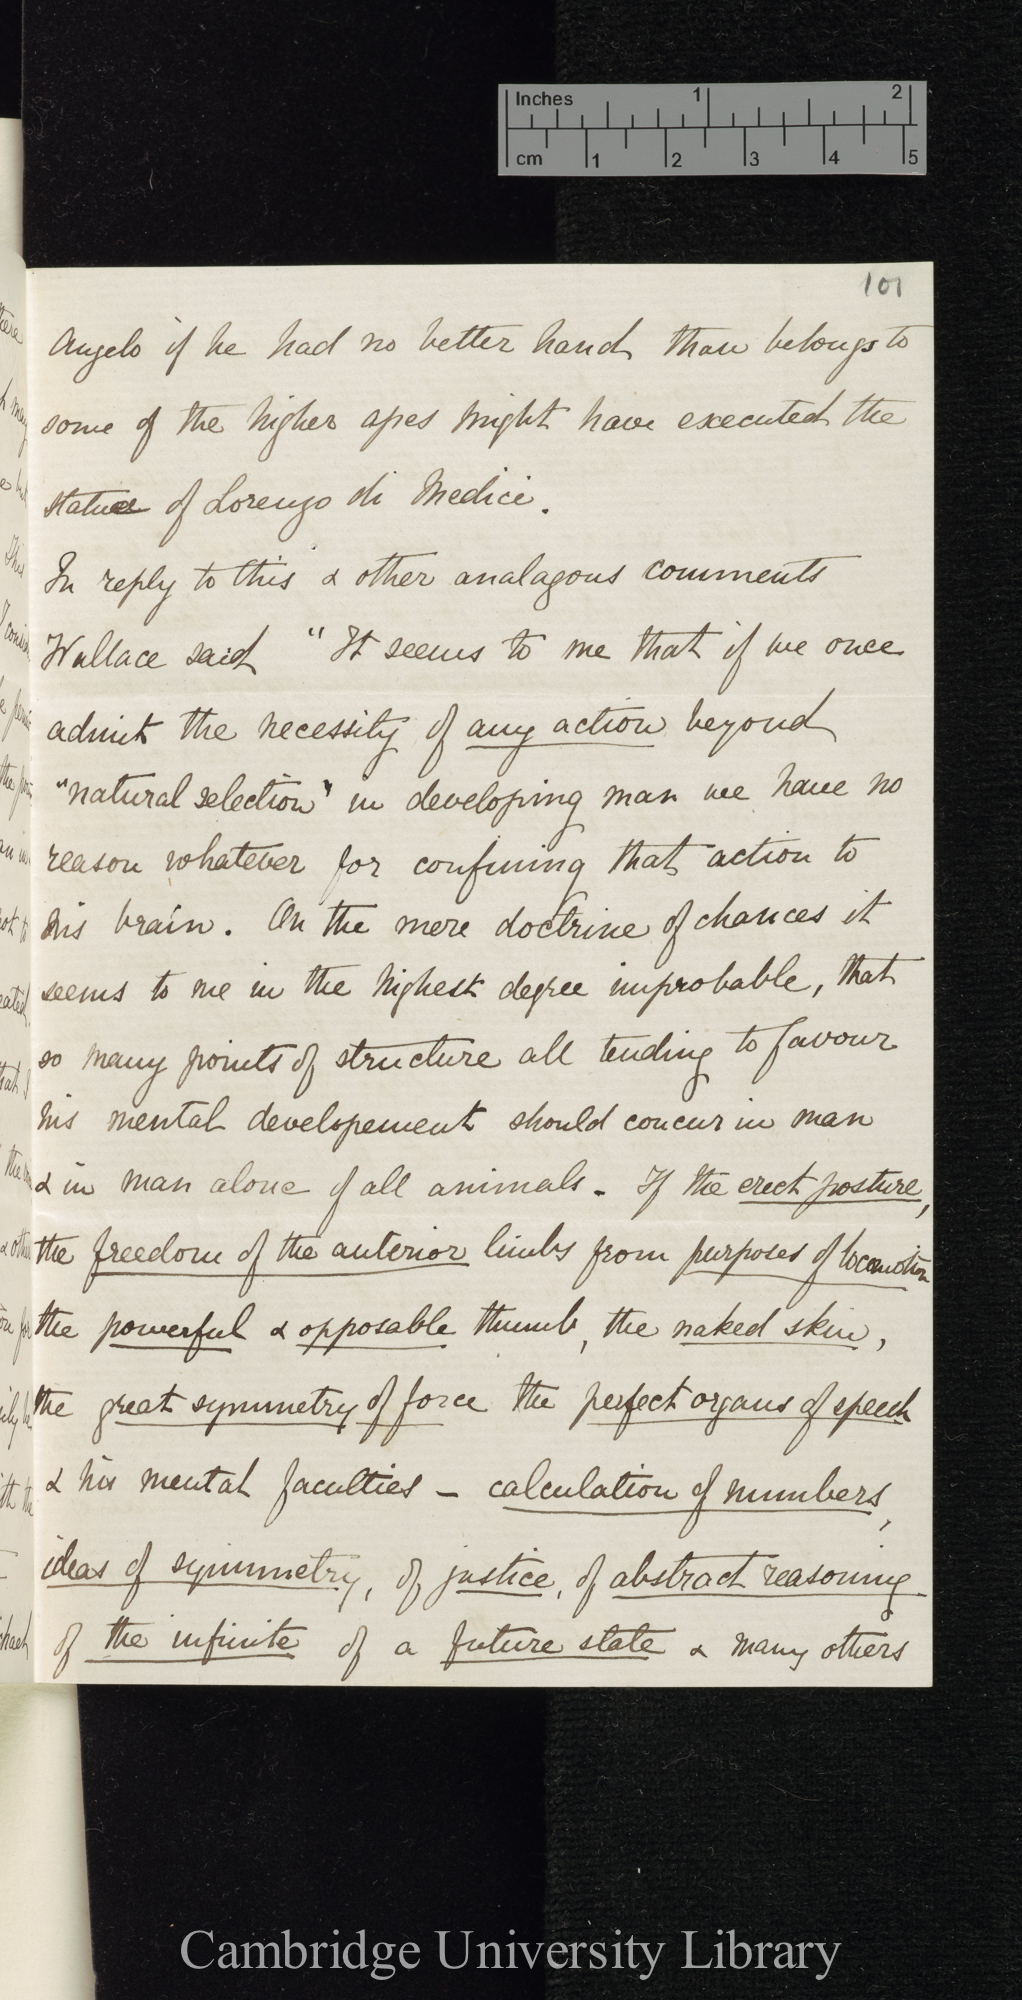 Inches 1 2
cm 1 2 3 4 5
101
Angelo if he had no better hand than belongs to
some of the higher apes might have executed the
statue of Lorenzo di Medici.
In reply to this & other analagous comments
Wallace said "It seems to me that if we once
admit the necessity of any action beyond
"natural selection" in developing man we have no
reason whatever for confining that action to
his brain. On the mere doctrine of chances it
seems to me in the highest degree improbable, that
so many points of structure all tending to favour
his mental developement should concur in man
& in man alone of all animals. If the erect posture,
the freedom of the anterior limbs from purposes of locomotion
the powerful & opposable thumb, the naked skin,
the great symmetry of force the perfect organs of speech
& his mental faculties – calculation of numbers,
ideas of symmetry, of justice, of abstract reasoning
of the infinite of a future state & many others
Cambridge University Library